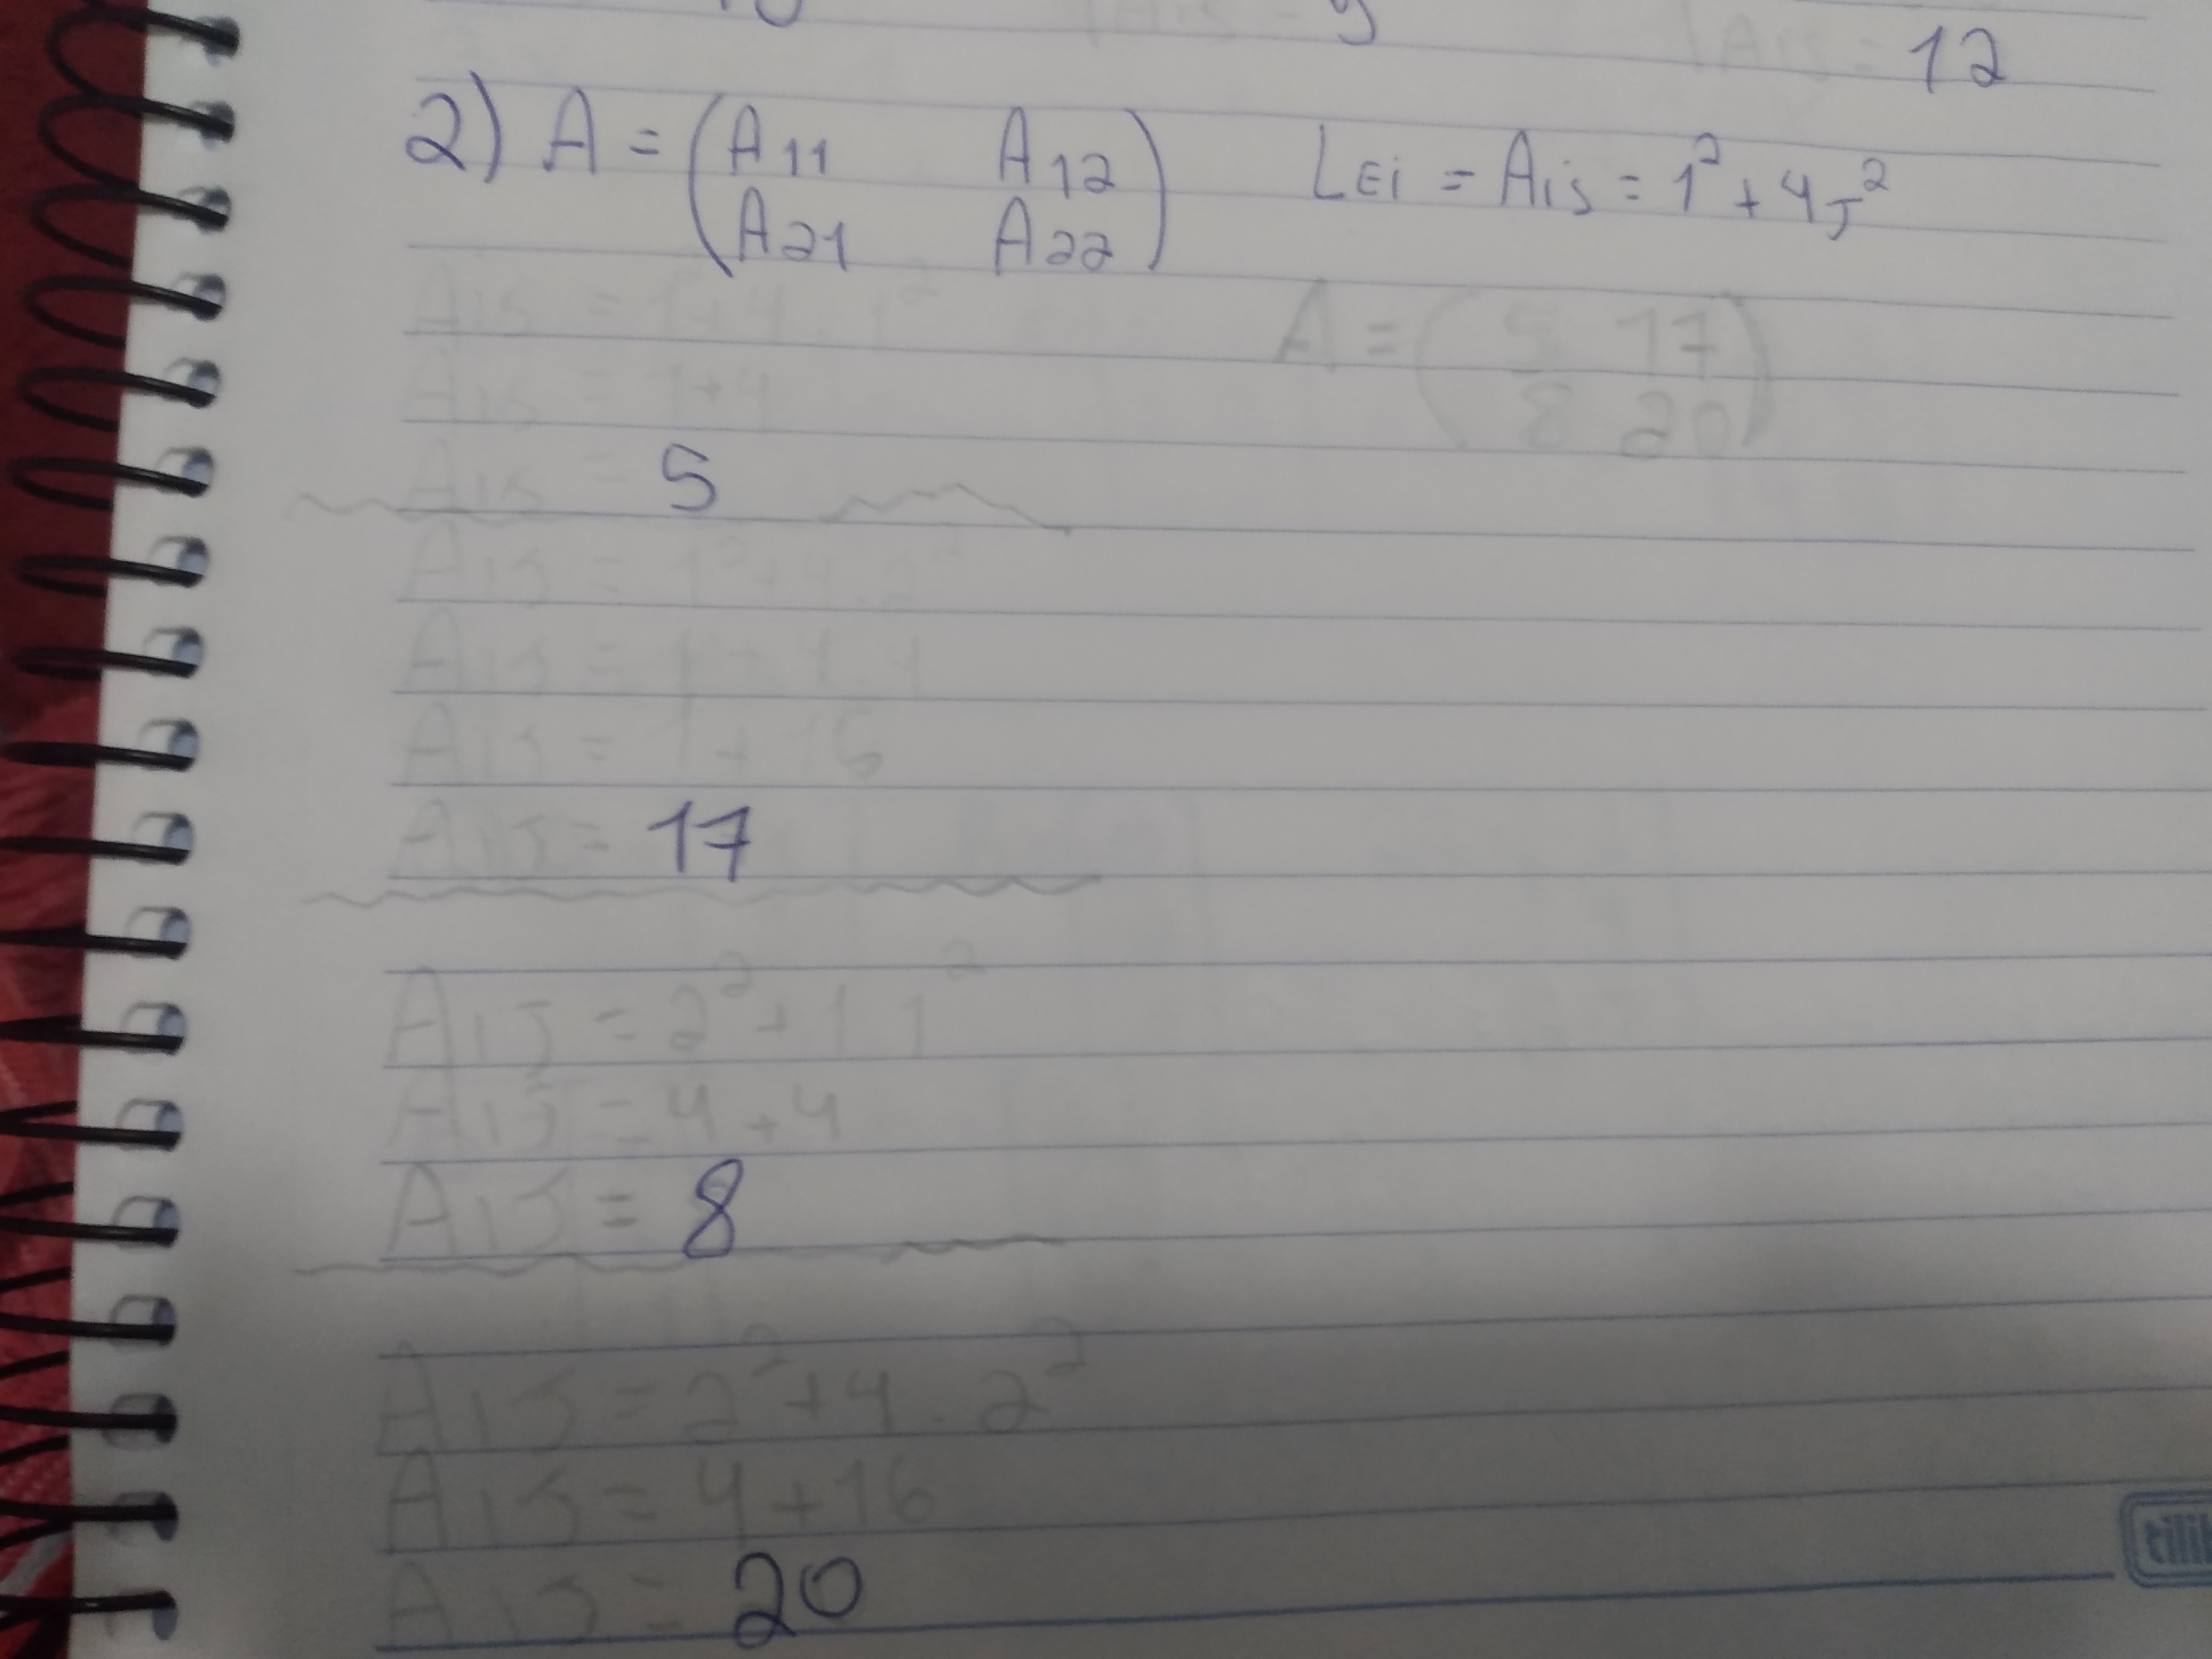 12
2) A = (A11 A12
A21 A22) LEi = Ais = 1² + 4J²
Ais = 1² + 4 . 1²
A = (5 17
8 20)
Ais = 1 + 4
Ais = 5
Ais = 1² + 4 . 2²
Ais = 1 + 4 . 4
Ais = 1 + 16
Ais = 17
AiJ = 2² + 1 1²
AiJ = 4 + 4
AiJ = 8
Ais = 2² + 4 . 2²
Ais = 4 + 16
Ais = 20